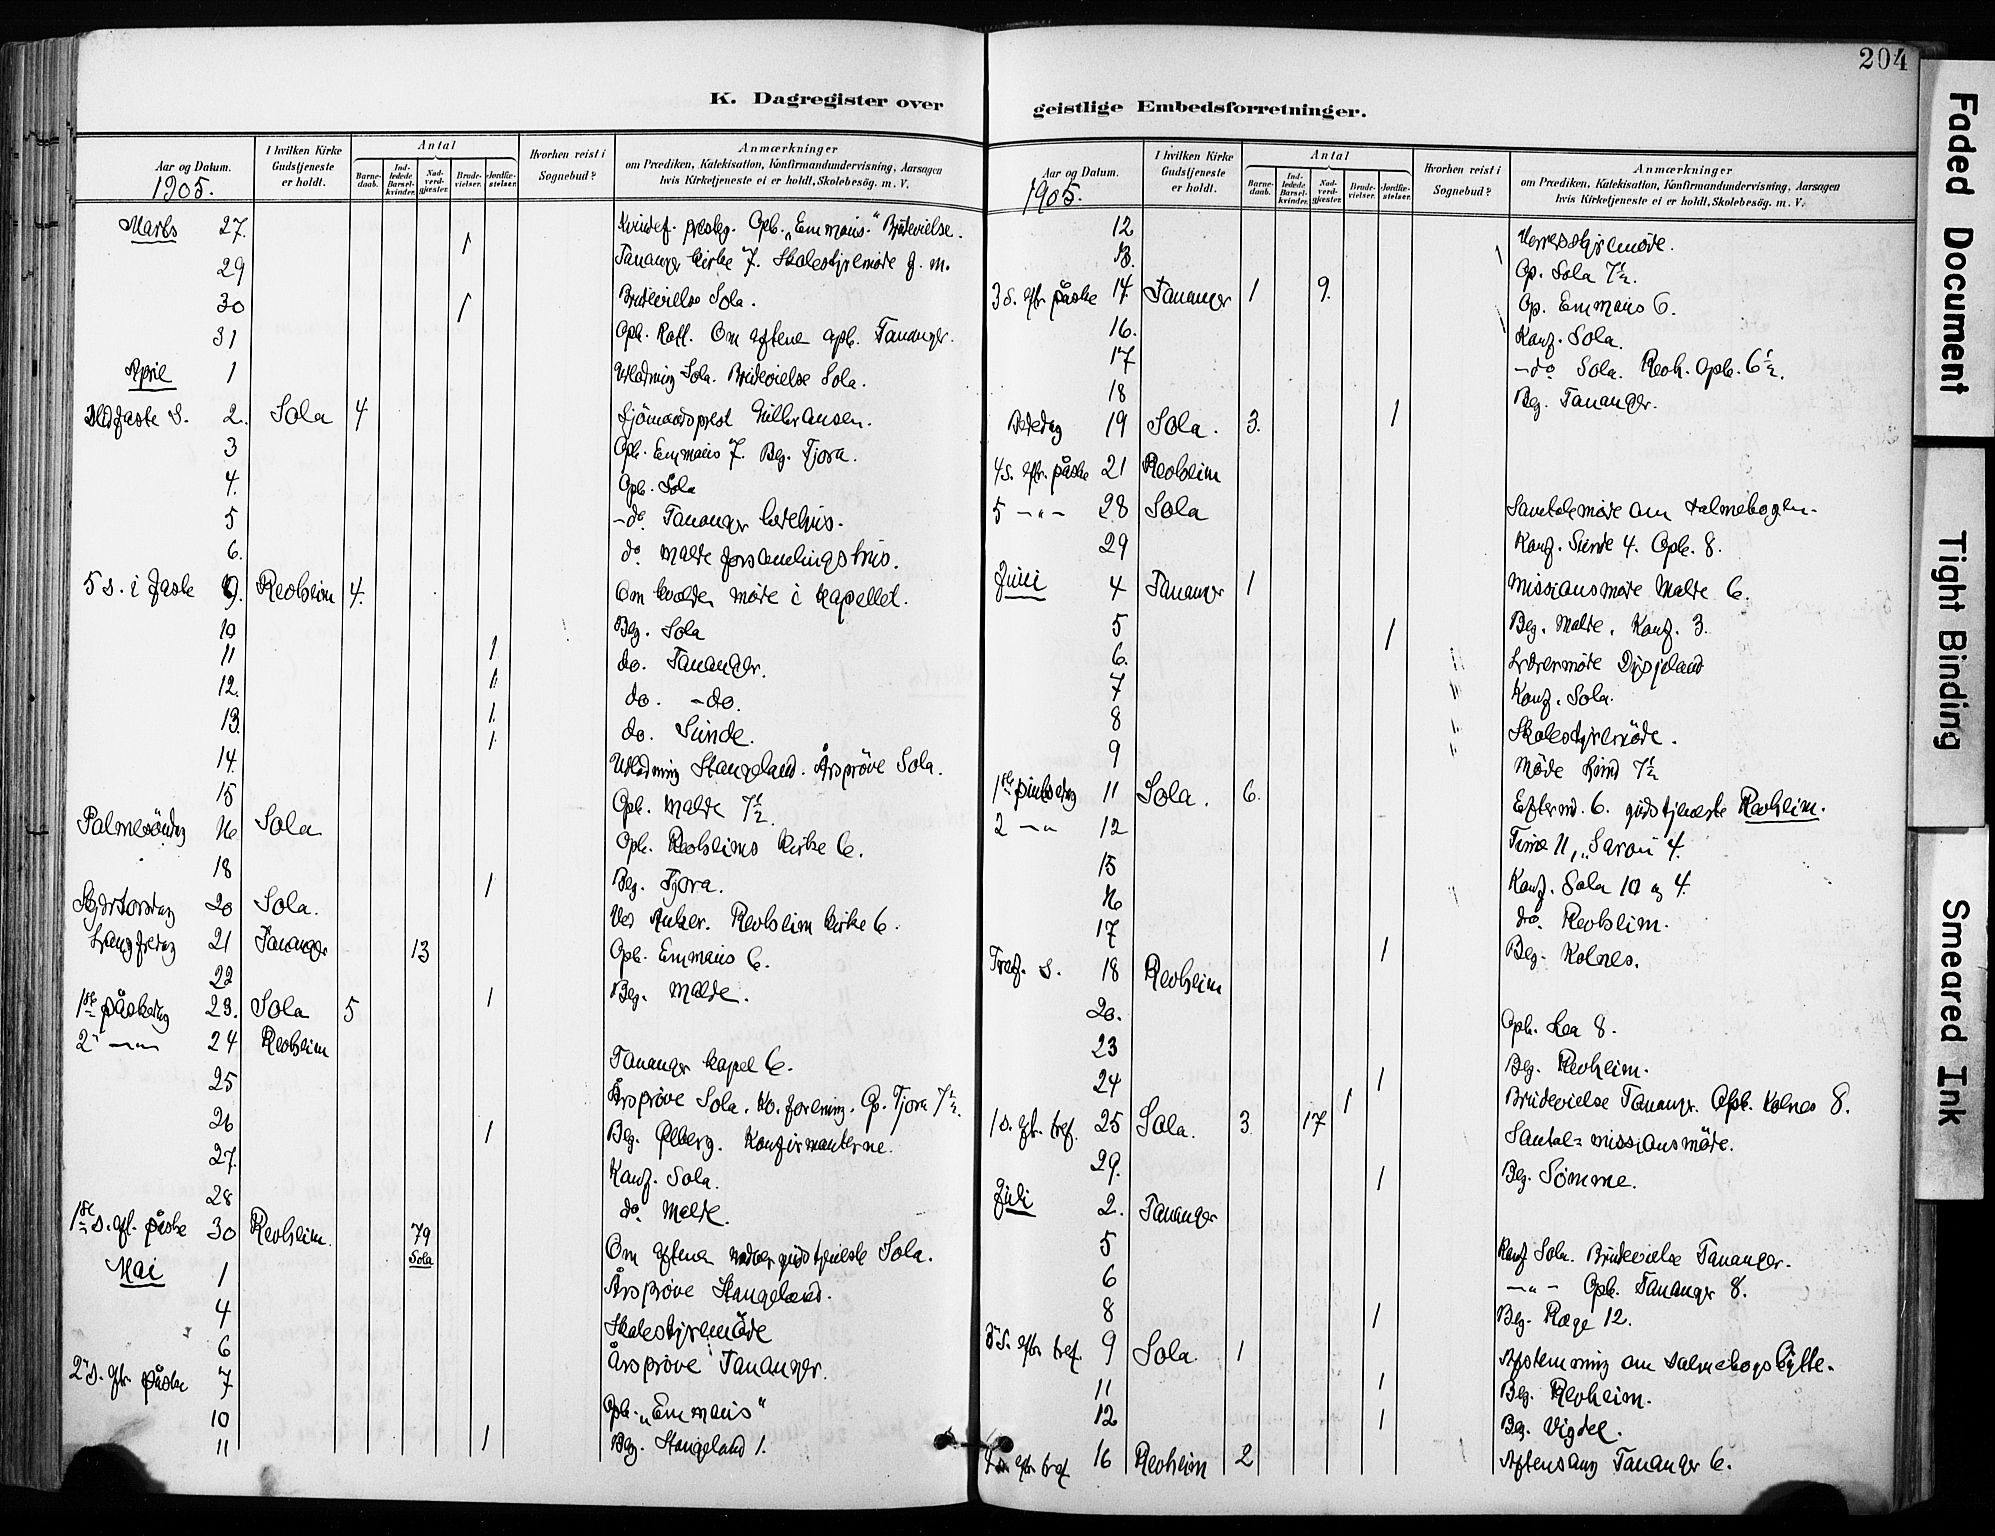 204
K. Dagregister over geistlige Embedsforretninger.
Aar og Datum.
I hvilken Kirke Gudstjeneste er holdt.
Antal
Barnedaab.
Indledede Barselkvinder.
Nadverdgjester.
Brudevielser.
Jordfæstelser.
Hvorhen reist i Sognebud?
Anmærkninger
om Prædiken, Katekisation, Konfirmandundervisning, Aarsagen
hvis Kirketjeneste ei er holdt, Skolebesög. m. V.
1905.
Marts 27. 1 Kvindef. præsteg. Opb. „Emmaus". Brudevielse.
29 Tananger kirke 7. Skolestyremøde f. m.
30 1 Brudevielse Sola.
31 Opb. Rott. Om aftenen opb. Tananger.
April 1 Udlodning Sola. Brudevielse Sola.
Midfaste S. 2. Sola 4 Sjömandsprest
3 Opb. Emmaus 7. Beg. Tjora.
4. Opb. Sola
5 -do. Tananger bedehus.
6. do Malde forsamlingshus.
5 s. i faste 9. Revheim 4. Om kvelden møde i kapellet.
10 Beg. Sola
11 1 do. Tananger.
12. 1 do. -do.
13. 1 do. Sunde.
14. 1 Udlodning Stangeland. Årsprøve Sola.
15 Opb. Malde 7½.
Palmesöndag 16 Sola Opb. Revheims kirke 6.
18 1 Beg. Tjora.
Skjærtorsdag 20 Sola. Revheim kirke 6.
Langfredag 21 Tananger 13 Opb. Emmaus 6.
22 Beg. Malde.
1ste påskedag 23. Sola 5 1
2 -"- 24 Revheim Tananger kapel 6.
25 Årsprøve Sola. Kv. forening. Op. Tjora 7½.
26 1 Beg. Ølberg. Konfirmanterne.
27. Konf. Sola.
28 do. Malde.
1ste s. eft. påske 30 Revheim. 79 Sola Om aftenen nadvergudstjeneste Sola.
Mai 1 Årsprøve Stangeland.
4 Skolestyremøde
6 Årsprøve Tananger.
2 s. eft. påske 7
10 Opb. „Emmaus"
11 1 Beg. Stangeland 1.
geistlige Embedsforretninger.
Aar og Datum.
I hvilken Kirke Gudstjeneste er holdt.
Antal
Barnedaab.
Indledede Barselkvinder.
Nadverdgjester.
Brudevielser.
Jordfæstelser.
Hvorhen reist i Sognebud?
Anmærkninger
om Prædiken, Katekisation, Konfirmandundervisning, Aarsagen
hvis Kirketjeneste ei er holdt, Skolebesøg. m. V.
1905.
12 Herredsstyremøde.
13. 1 Op. Sola 7½.
3 s. eft. påske 14. Tananger 1 9. Op. Emmaus 6.
16. Konf. Sola.
17 -do Sola. Revh. Opb. 6½.
18 Beg. Tananger.
Bededag 19 Sola. 3. 1
4 s. eft. påske 21 Revheim
5 -"- 28 Sola Samtalemøde om salmebogen.
29 Konf. Sunde 4. Opb. 8.
Juni 4 Tananger 1 Missionsmøde Malde 6.
5 1 Beg. Malde. Konf. 3.
6. Lærermøde Dysjeland
7 Konf. Sola.
8 Skolestyremøde.
9 Møde Lund 7½
1ste pinsedag 11 Sola. 6. Efterm. 6. gudstjeneste Revheim.
2 -"- 12 Time 11, „Saron" 4.
15 Konf. Sola 10 og 4.
16 do. Revheim.
17 1 Beg. Kolnes.
Tref. S. 18 Revheim
20. Opb. Lea 8.
23 Beg. Revheim.
24 1 1 Brudevielse Tananger. Opb. Kolnes 8.
1 s. eft. tref. 25 Sola. 3. 17 Santal=missionsmøde.
29. 1 Beg. Sømme.
Juli 2. Tananger
5 Konf Sola. Brudevielse Tananger.
6 -"- Opb. Tananger 8.
8 1 Beg. Ræge 12.
3 s. eftr. tref. 9 Sola 1 Afstemning om salmebogsbytte.
11 1 Beg. Revheim.
12 1 Beg. Vigdel.
4 s. eftr tref. 16 Revheim 2 Aftensang Tananger 6.
Faded Document
Tight Binding
Smeared Ink